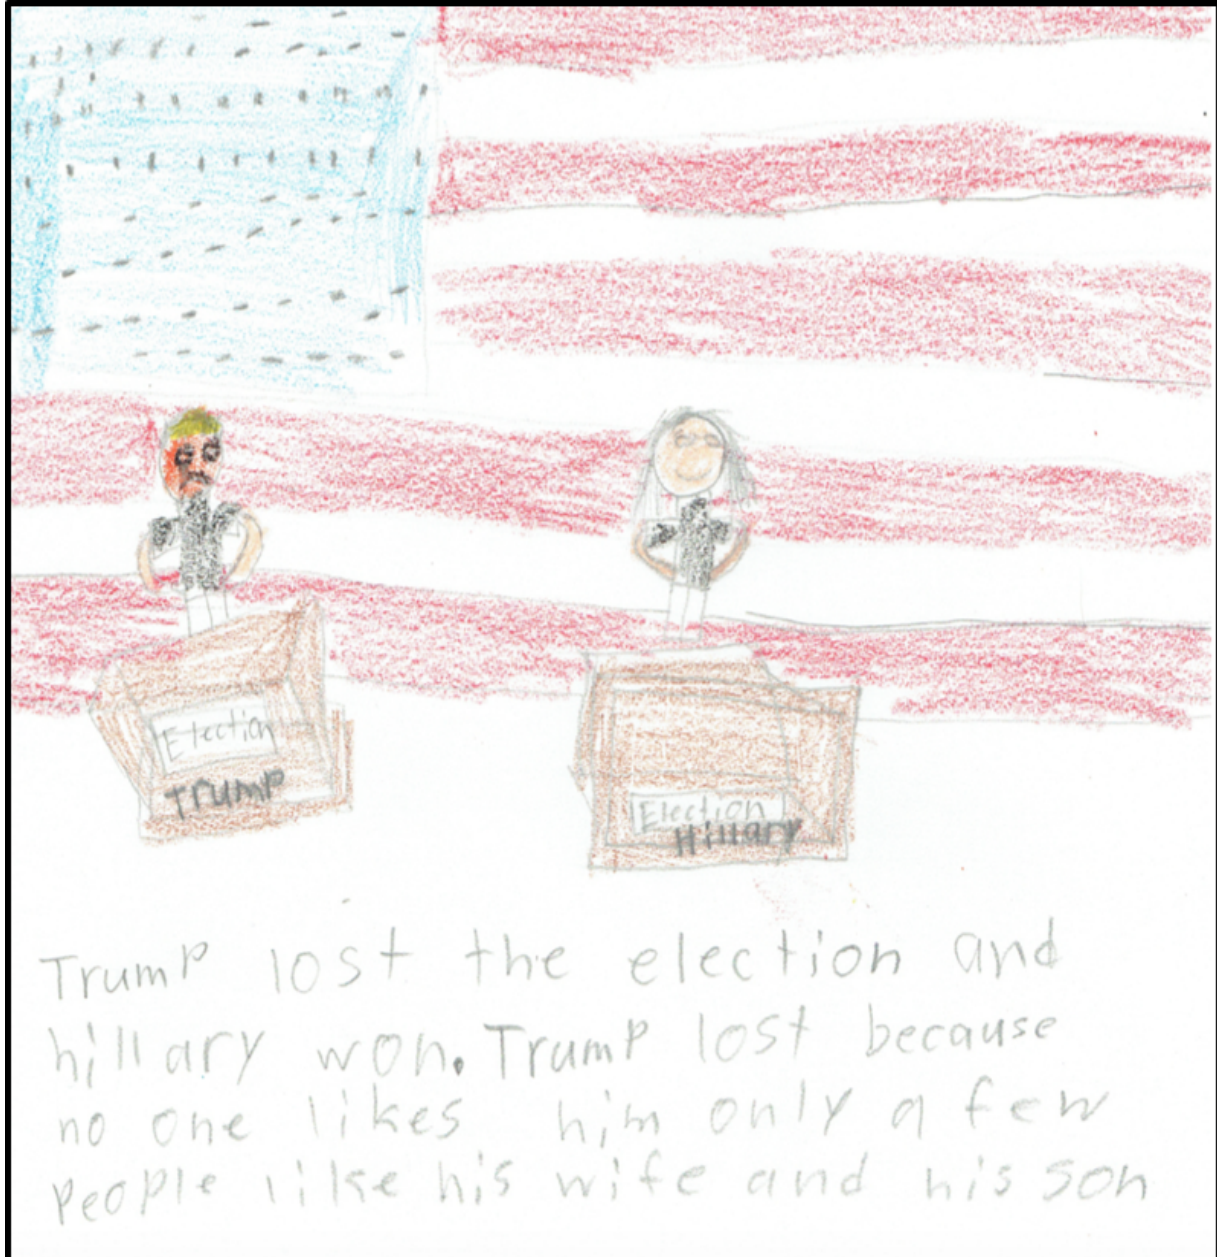 Election
Trump
Election
Hillary
Trump lost the election and
hillary won. Trump lost because
no one likes him only a few
people like his wife and his son